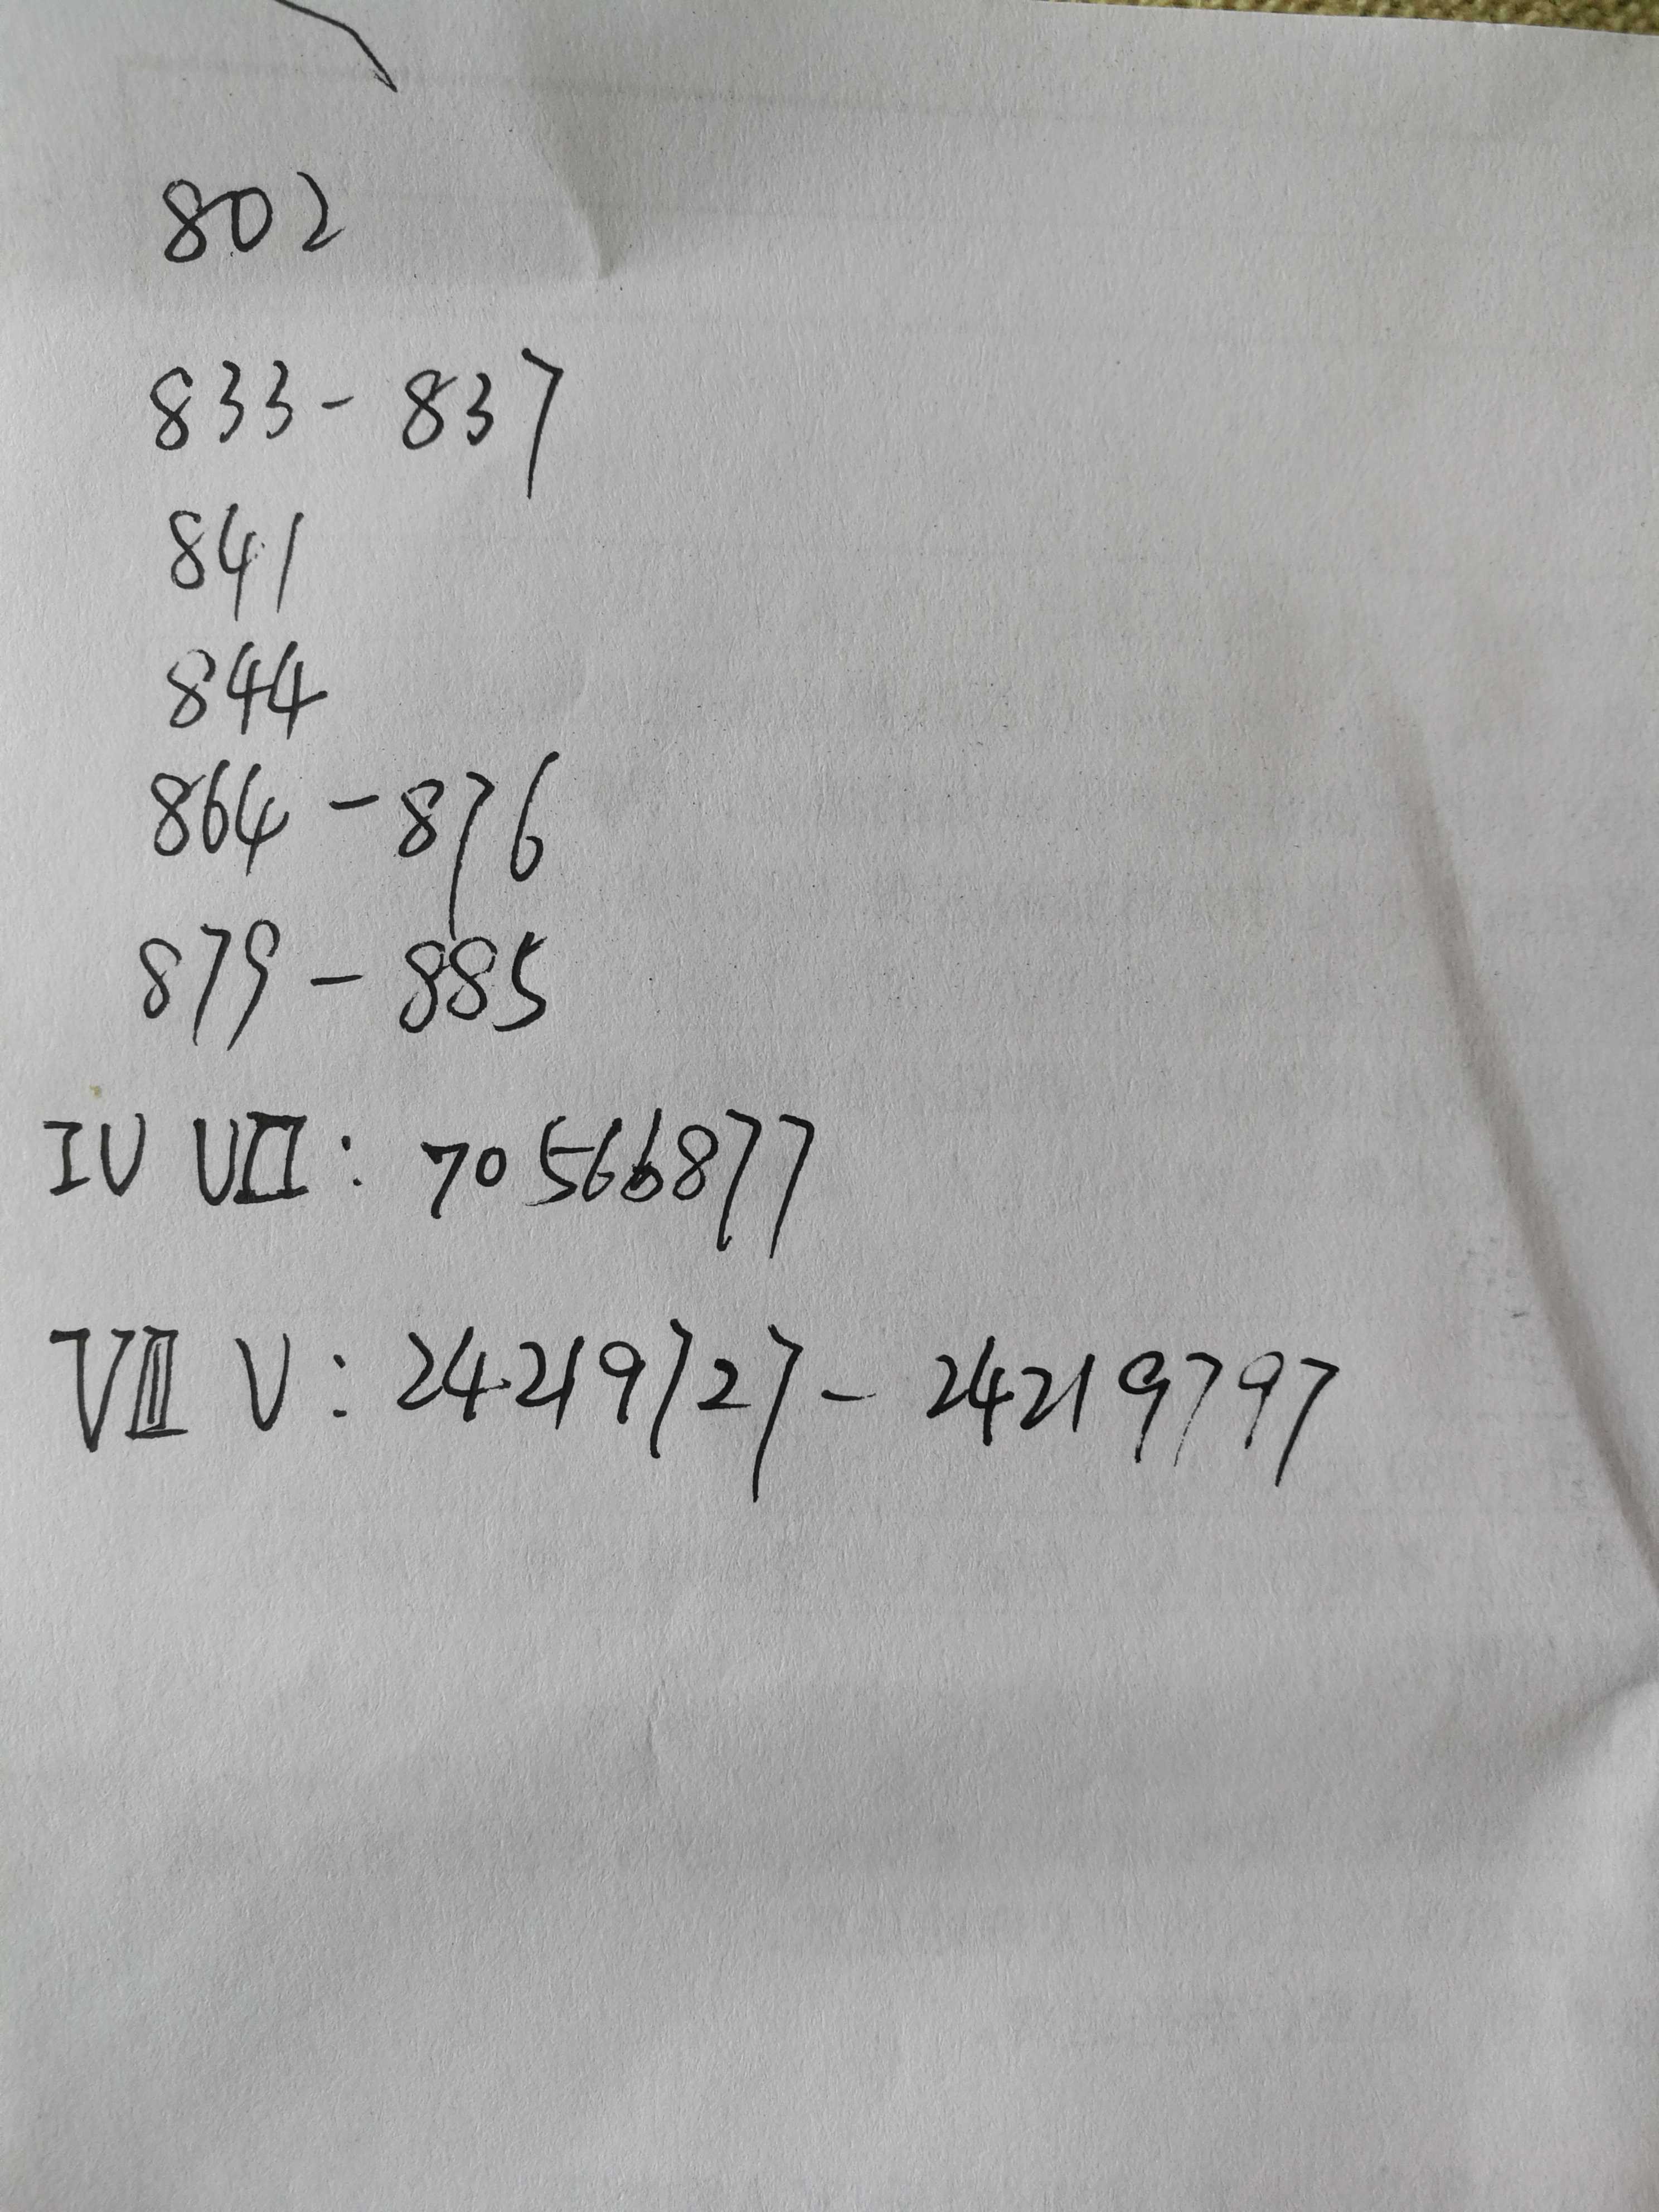 802
833-837
841
844
864-876
879-885
IV VII: 70566877
VIII V: 24219727-24219797